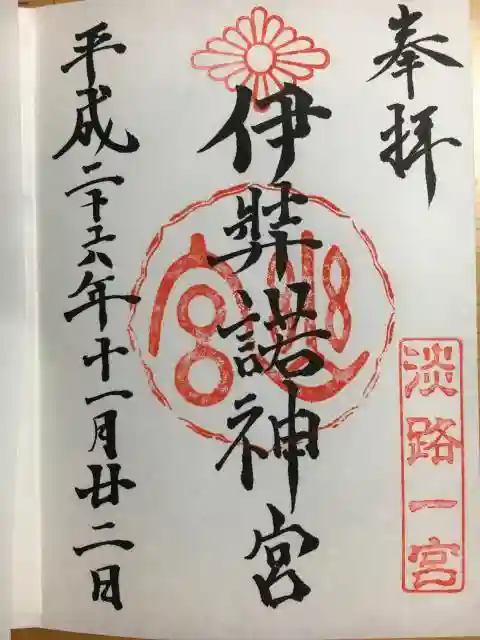 奉拝
淡路一宮
伊弉諾神宮
幽宮
平成二十六年十一月廿二日